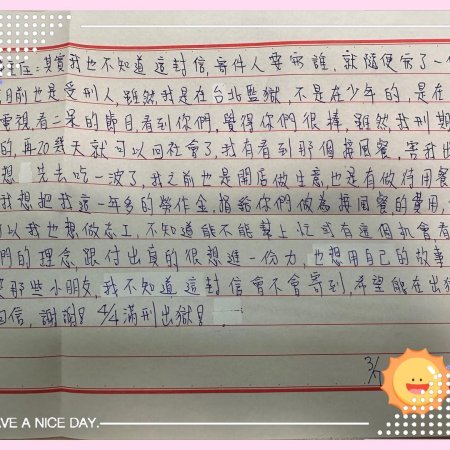 主任:其實我也不知道這封信,寄件人要寫誰,就隨便寫了一
目前也是受刑人,雖然我是在台北監獄,不是在少年的,是在
電視看三采的節目看到你們,覺得你們很棒,雖然我刑期
的,再20幾天就可以回社會了,我有看到那個接風餐,害我出
想 先去吃一波了,我之前也是開店做生意,也是有做待用餐
我想把我這一年多的勞作金,捐給你們做為接風餐的費用,
以我也想做志工,不知道能不能幫上忙或有這個機會看
們的理念,跟付出真的很想進一份力,也想用自己的故事
那些小朋友,我不知道這封信會不會寄到,希望能在出獄
回信,謝謝! 4/4滿刑出獄!
3/
HAVE A NICE DAY.